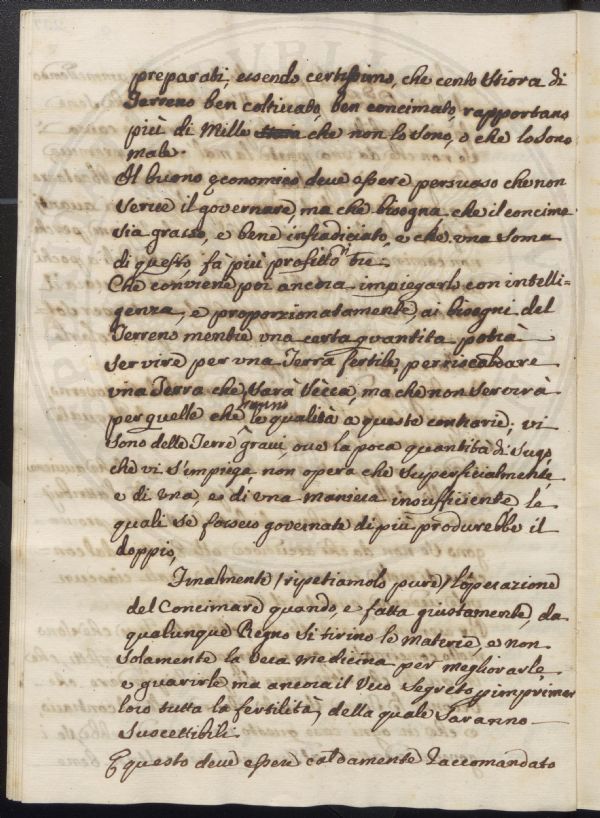 preparati, essendo certissimo, che cento Stiora di
Terreno ben coltivato, ben concimato, rapportano
più di Mille che non lo sono, o che lo sono
male.
Il buono economico deve essere persuaso che non
serve il governare, ma che bisogna che il concime
sia grasso, e bene infradiciato, e che una soma
di questo, fà più profitto tre.
Che conviene poi ancora impiegarlo con intelli=
genza, e proporzionatamente, ai bisogni del
Terreno mentre una certa quantità potrà
servire per una Terra fertile, per riscaldare
una Terra che sarà secca, ma che non servirà
per quelle che hanno le qualità a queste contrarie; vi
sono delle Terre gravi, ove la poca quantità di sugo
che vi s'impiega non opera che superficialmente,
e di una, e di una maniera insufficiente, le
quali se fossero governate di più produrebbe il
doppio,
Finalmente / ripetiamolo pure / l'operazione
del Concimare quando, e fatta giustamente, da
qualunque Regno si tirino le materie, e non
solamente la vera medicina per megliorarle,
e guarirle ma ancora il vero segreto p imprimer
loro tutta la fertilità, della quale saranno
suscettibili.
E questo deve essere caldamente raccomandato